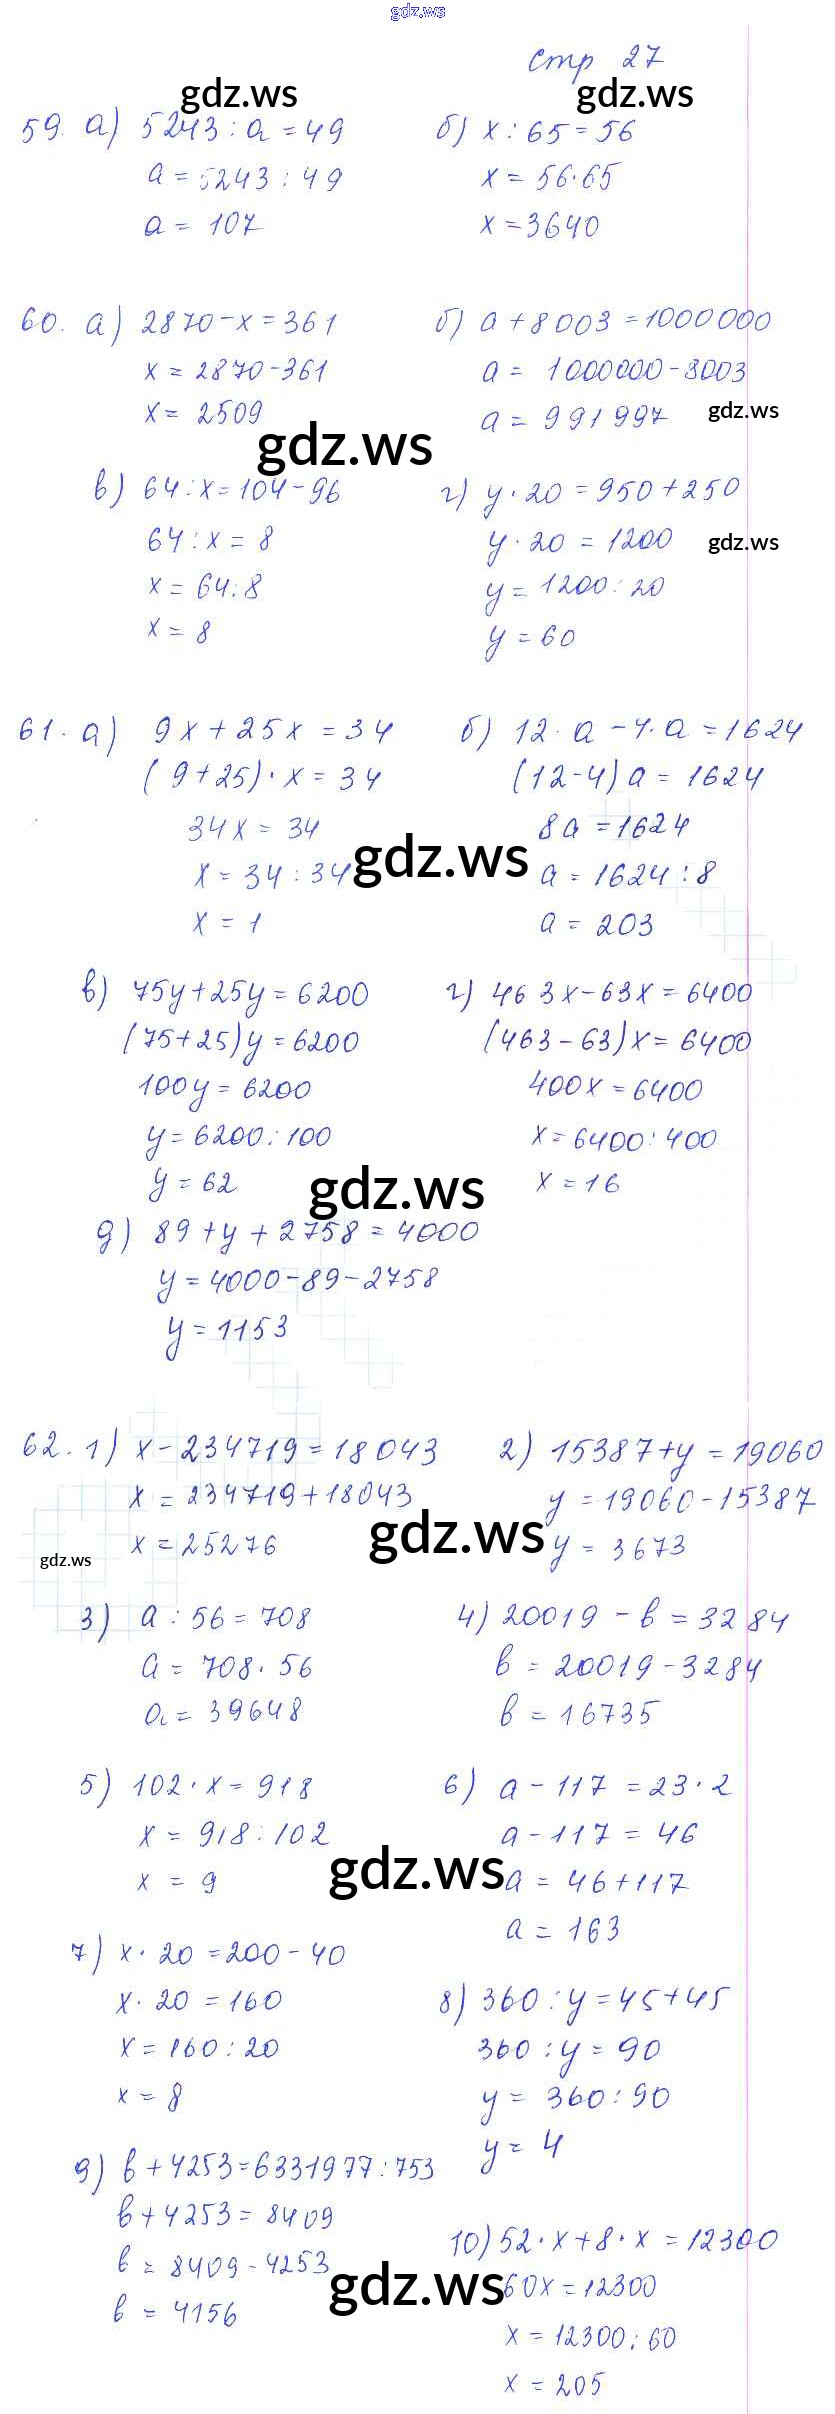 gdz.ws
стр 27
gdz.ws gdz.ws
59. а) 5243 : а = 49
а = 5243 : 49
а = 107
б) х : 65 = 56
х = 56·65
х = 3640
60. а) 2870 - х = 361
х = 2870 - 361
х = 2509
б) а + 8003 = 1000000
а = 1000000 - 8003
а = 991997
gdz.ws
gdz.ws
в) 64 : х = 104 - 96
64 : х = 8
х = 64 : 8
х = 8
г) у · 20 = 950 + 250
у · 20 = 1200
у = 1200 : 20
у = 60
gdz.ws
61. а) 9х + 25х = 34
(9 + 25) · х = 34
34х = 34
х = 34 : 34
х = 1
б) 12 · а - 4 · а = 1624
(12 - 4) а = 1624
8а = 1624
а = 1624 : 8
а = 203
gdz.ws
в) 75у + 25у = 6200
(75 + 25) у = 6200
100у = 6200
у = 6200 : 100
у = 62
г) 463х - 63х = 6400
(463 - 63) х = 6400
400х = 6400
х = 6400 : 400
х = 16
gdz.ws
д) 89 + у + 2758 = 4000
у = 4000 - 89 - 2758
у = 1153
62. 1) х - 234719 = 18043
х = 234719 + 18043
х = 25276
2) 15387 + у = 19060
у = 19060 - 15387
у = 3673
gdz.ws
gdz.ws
3) а : 56 = 708
а = 708 · 56
а = 39648
4) 20019 - в = 3284
в = 20019 - 3284
в = 16735
5) 102 · х = 918
х = 918 : 102
х = 9
6) а - 117 = 23 · 2
а - 117 = 46
а = 46 + 117
а = 163
gdz.ws
7) х · 20 = 200 - 40
х · 20 = 160
х = 160 : 20
х = 8
8) 360 : у = 45 + 45
360 : у = 90
у = 360 : 90
у = 4
9) в + 4253 = 6331977 : 753
в + 4253 = 8409
в = 8409 - 4253
в = 4156
10) 52 · х + 8 · х = 12300
60х = 12300
х = 12300 : 60
х = 205
gdz.ws